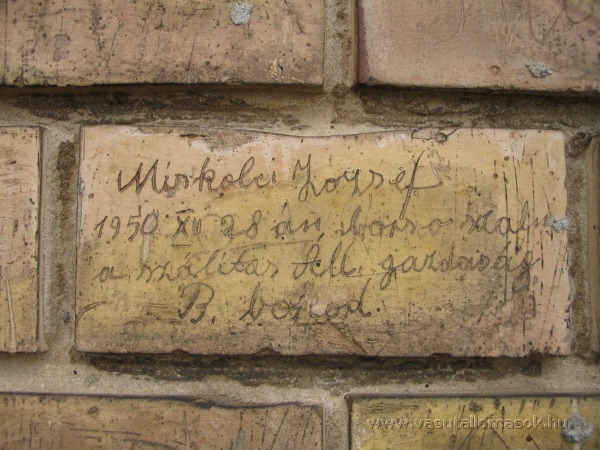 Miskolci József
1950 XII 28 án, borsó szalm
a szálitás Áll. gazdaság
B. bokod.
www.vasutallomasok.hu